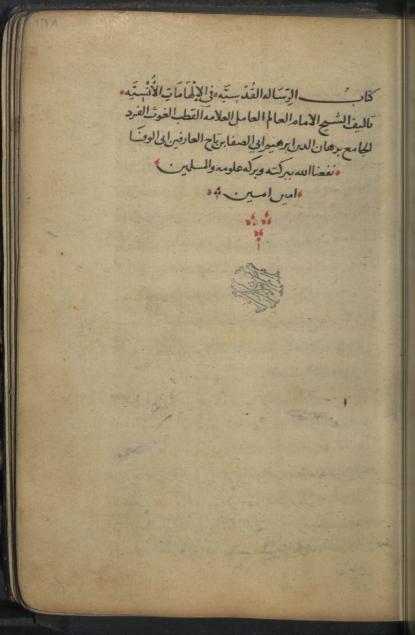 ١٦٨
كتاب الرساله القدسيّه في الإلهامات الأُنْسيّه
تاليف الشيخ الامام العالم العامل العلامه القطب الغوث الفرد
الجامع برهان الدين ابرهيم ابى الصفا بن تاج العارفين ابى الوفا
نفعنا الله ببركته وبركه علومه والمسلمين
امين امين